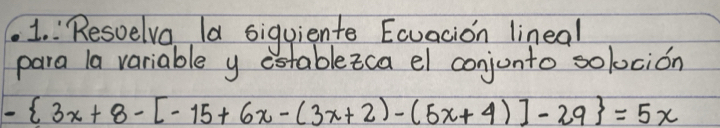 .1.: Resuelva la siguiente Ecuación lineal
para la variable y establezca el conjunto solución
- { 3x + 8 - [ - 15 + 6x - (3x + 2) - (5x + 4) ] - 29 } = 5x